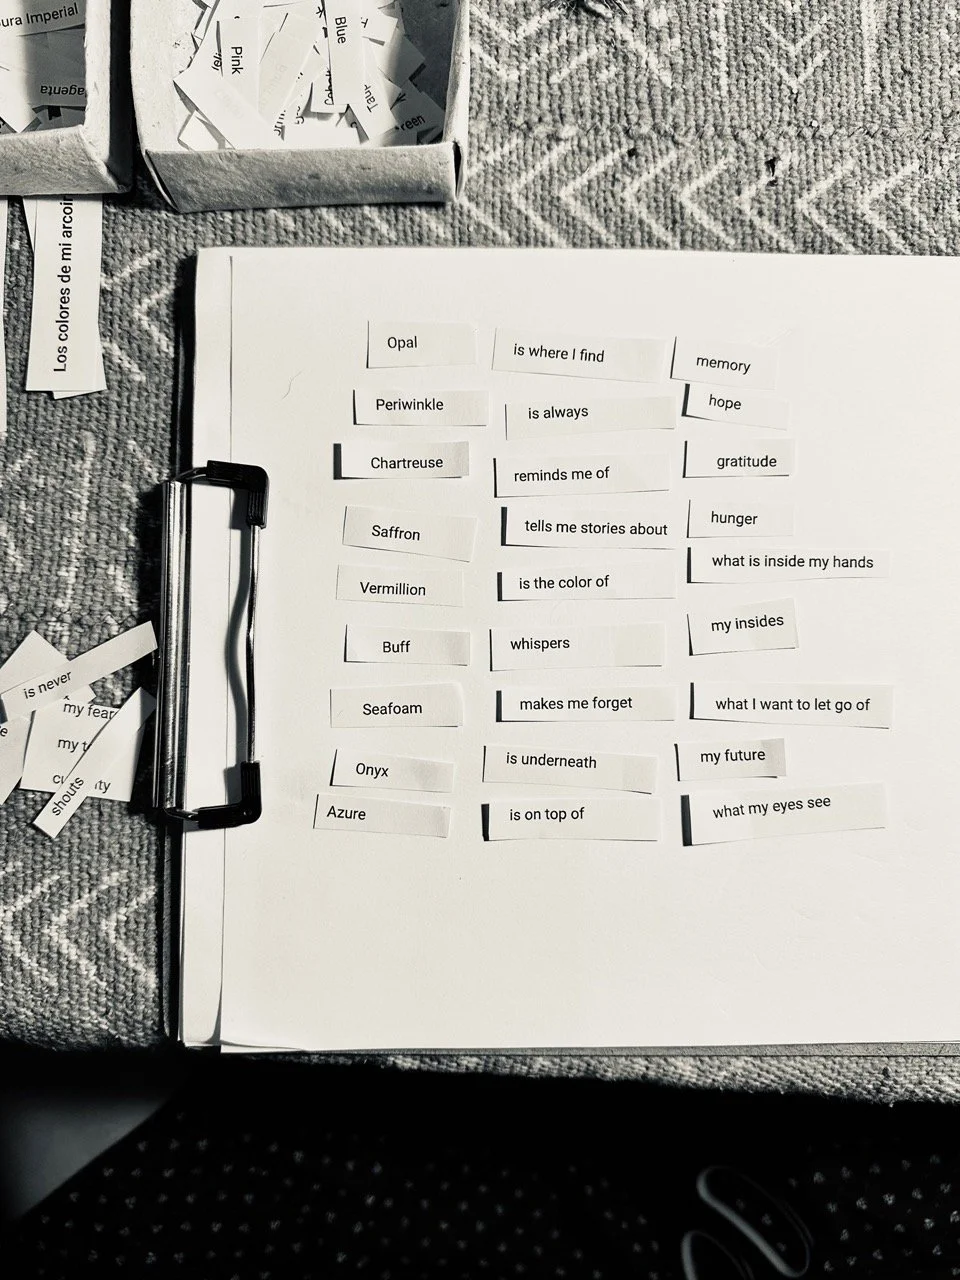 Imperial
Pink
Blue
Los colores de mi
Opal is where I find memory
Periwinkle is always hope
Chartreuse reminds me of gratitude
Saffron tells me stories about hunger
Vermillion is the color of what is inside my hands
Buff whispers my insides
Seafoam makes me forget what I want to let go of
Onyx is underneath my future
Azure is on top of what my eyes see
is never
my fear
my
shouts